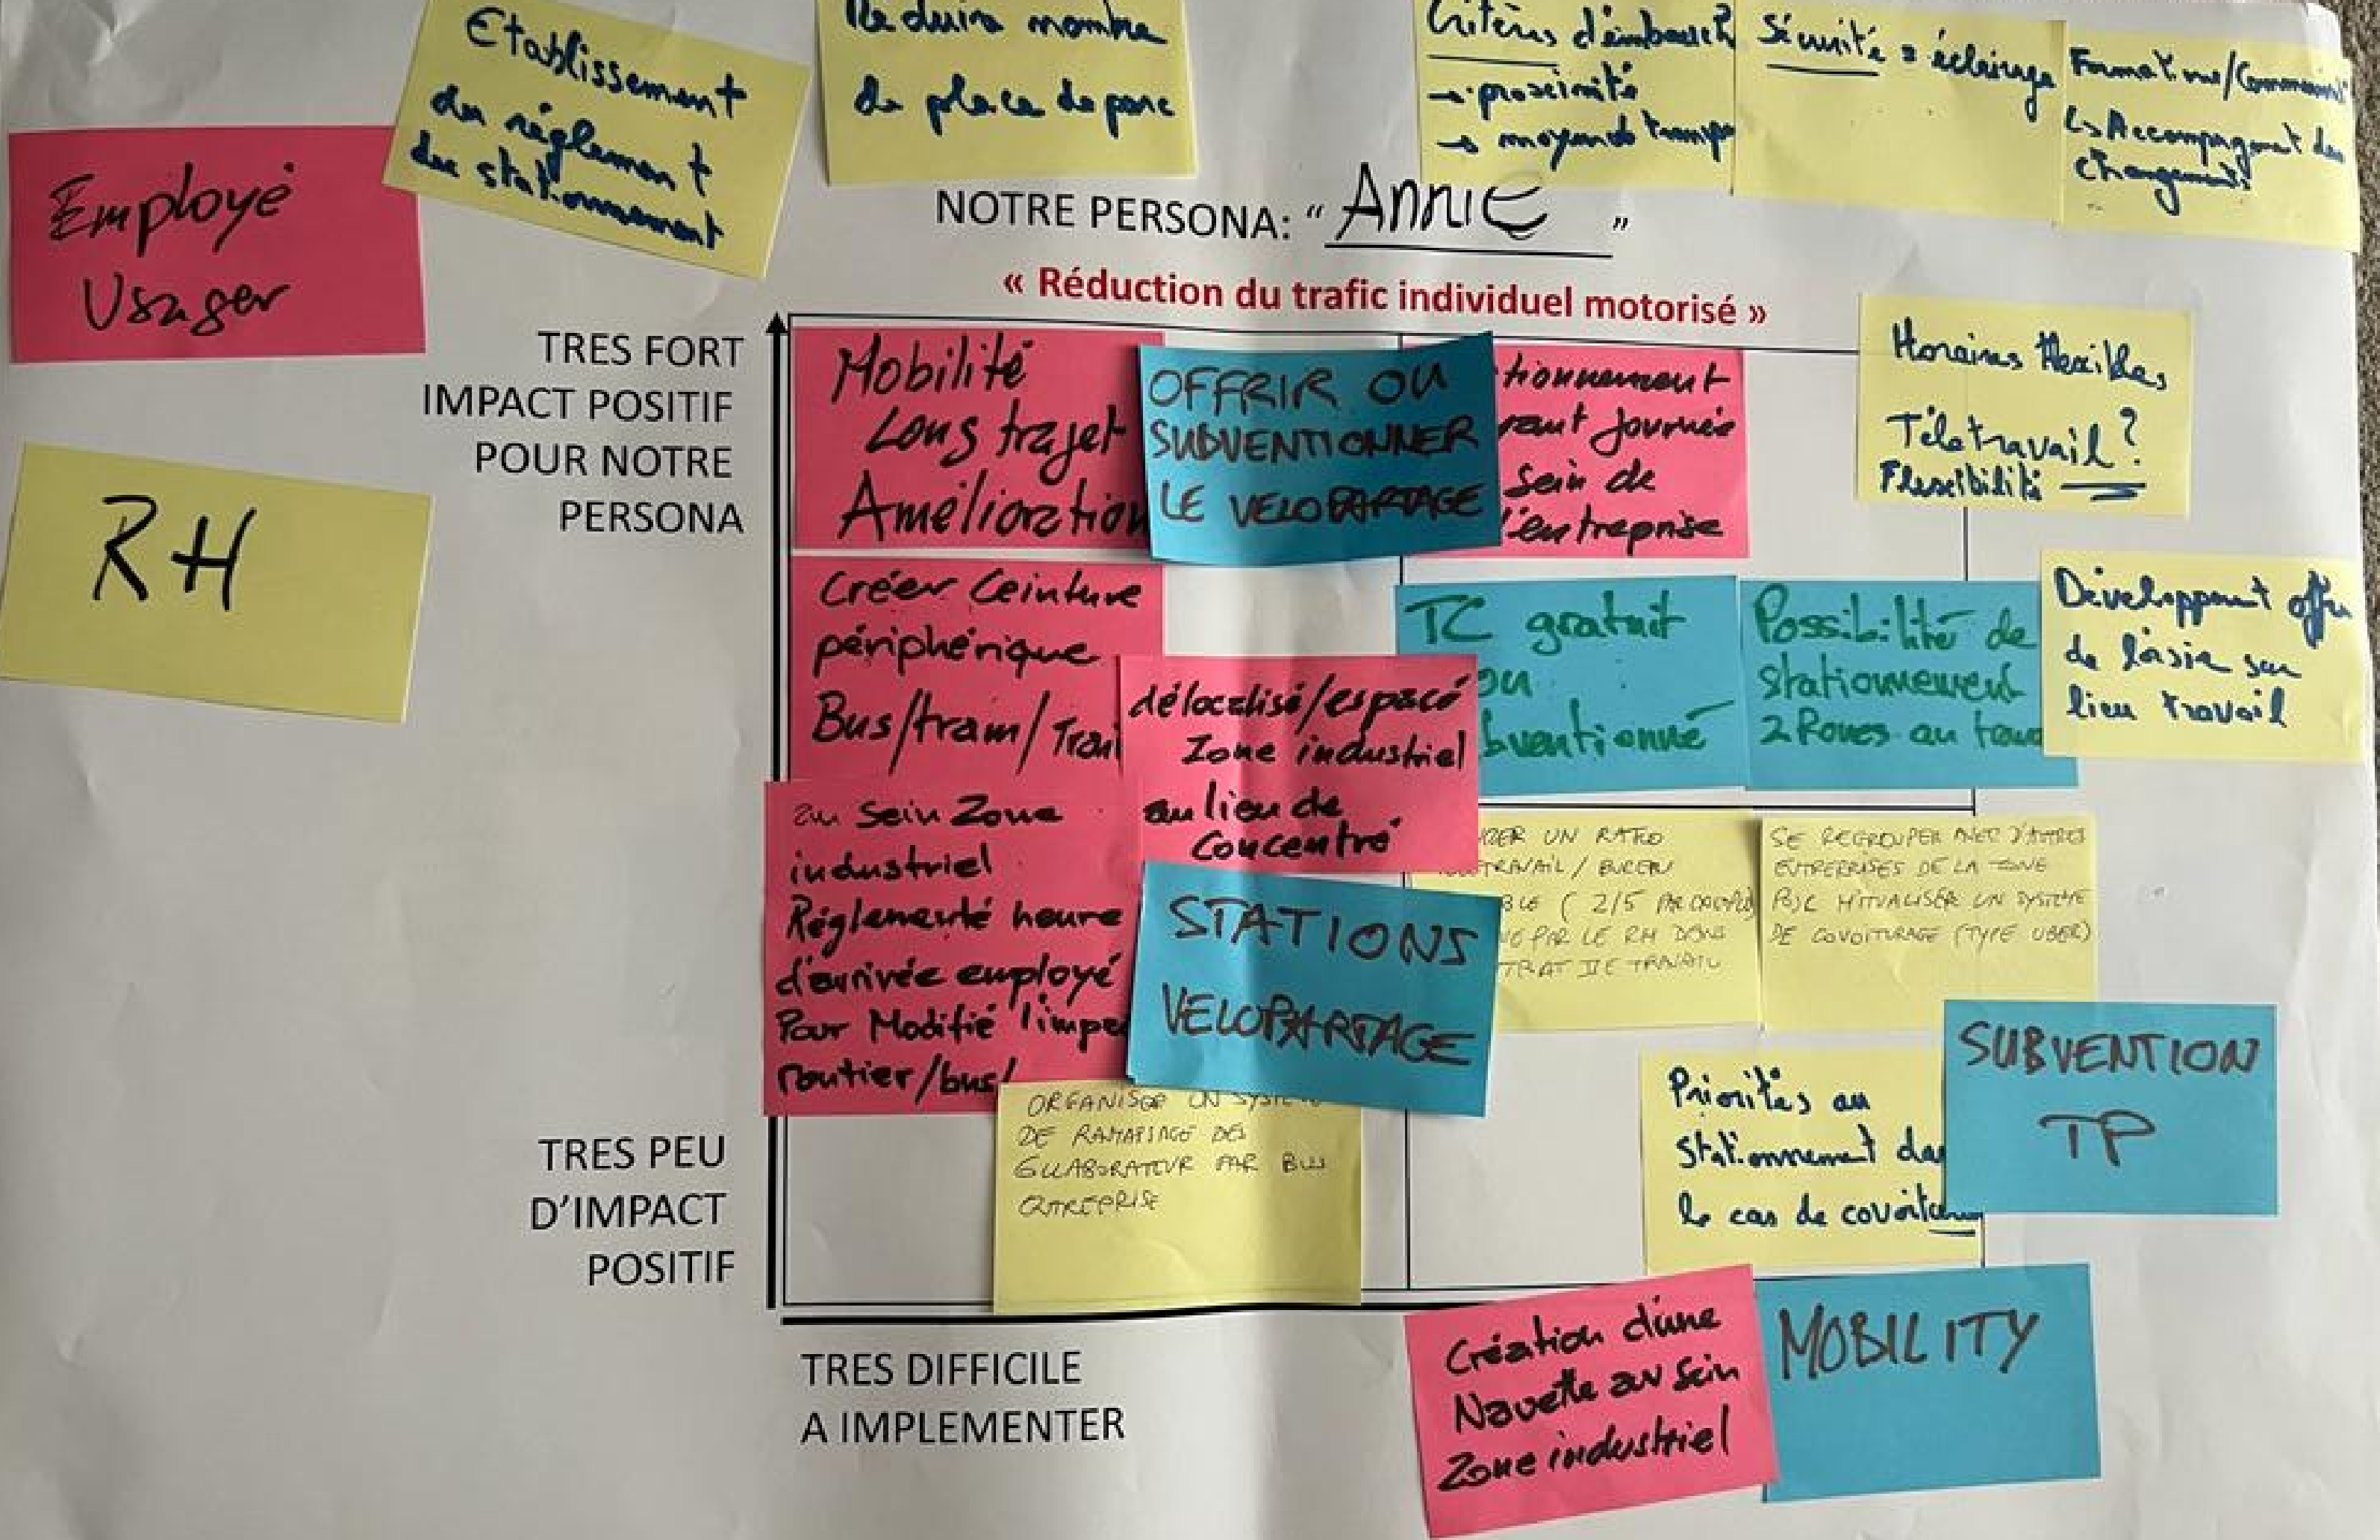 Etablissement
du règlement
du stationnement
Réduire nombre
de place de parc
Critères d'embauch
→ proximité
→ moyen de transpo
Sécurité = éclairage
Formations/
↳ Accompagnement des
changements
Employé
Usager
RH
NOTRE PERSONA: " ANNIE "
« Réduction du trafic individuel motorisé »
TRES FORT
IMPACT POSITIF
POUR NOTRE
PERSONA
Mobilité
Long trajet
Amélioration
OFFRIR OU
SUBVENTIONNER
LE VELOPARTAGE
tionnement
rant journée
sein de
l'entreprise
Horaires flexibles
Télétravail ?
Flexibilité
Créer Ceinture
périphérique
Bus/tram/Train
délocalisé/espacé
Zone industriel
au lieu de
Concentré
TC gratuit
ou
bventionné
Possibilité de
stationnement
2 Roues au
Développement offre
de loisir sur
lieu travail
au sein Zone
industriel
Réglementé heure
d'arrivée employé
Pour Modifié l'impa
routier/bus/
STATIONS
VELOPARTAGE
UN RATIO
TRAVAIL / BUREAU
BLE ( 2/5 PAR EXEMPLE)
PAR LE RH DANS
TRAT DE TRAVAIL
SE REGROUPER AVEC D'AUTRES
ENTREPRISES DE LA ZONE
POUR MUTUALISER UN SYSTEME
DE COVOITURAGE (TYPE UBER)
ORGANISER UN SYSTE
DE RAMASSAGE DES
COLLABORATEUR PAR BUS
ENTREPRISE
Priorités au
stationnement dans
le cas de covoiturage
SUBVENTION
TP
TRES PEU
D'IMPACT
POSITIF
TRES DIFFICILE
A IMPLEMENTER
Création d'une
Navette au sein
Zone industriel
MOBILITY